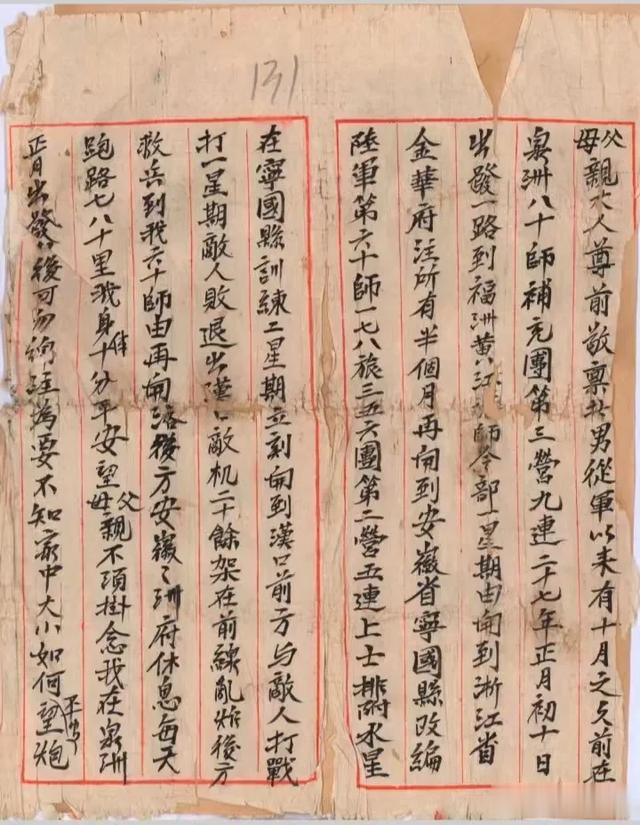 131
父母親大人尊前敬禀共男從軍以來有十月之久前在
泉洲八十師補充團第三營九連二十七年正月初十日
出發一路到福洲黃江師令部一星期由甪到浙江省
金華府注所有半個月再甪到安徽省寧國縣改編
陸軍第六十師一七八旅三五六團第二營五連上士排附水星
在寧國縣訓練二星期立刻甪到漢口前方与敵人打戰
打一星期敵人敗退出漢口敵机二十餘架在前線亂炸後方
救兵到我六十師由再甪落後方安徽之洲府休息每天
跑路七八十里我身体十分平安望父母親不須掛念我在泉洲
正月出發以後可勿為要不知家中大小如何望